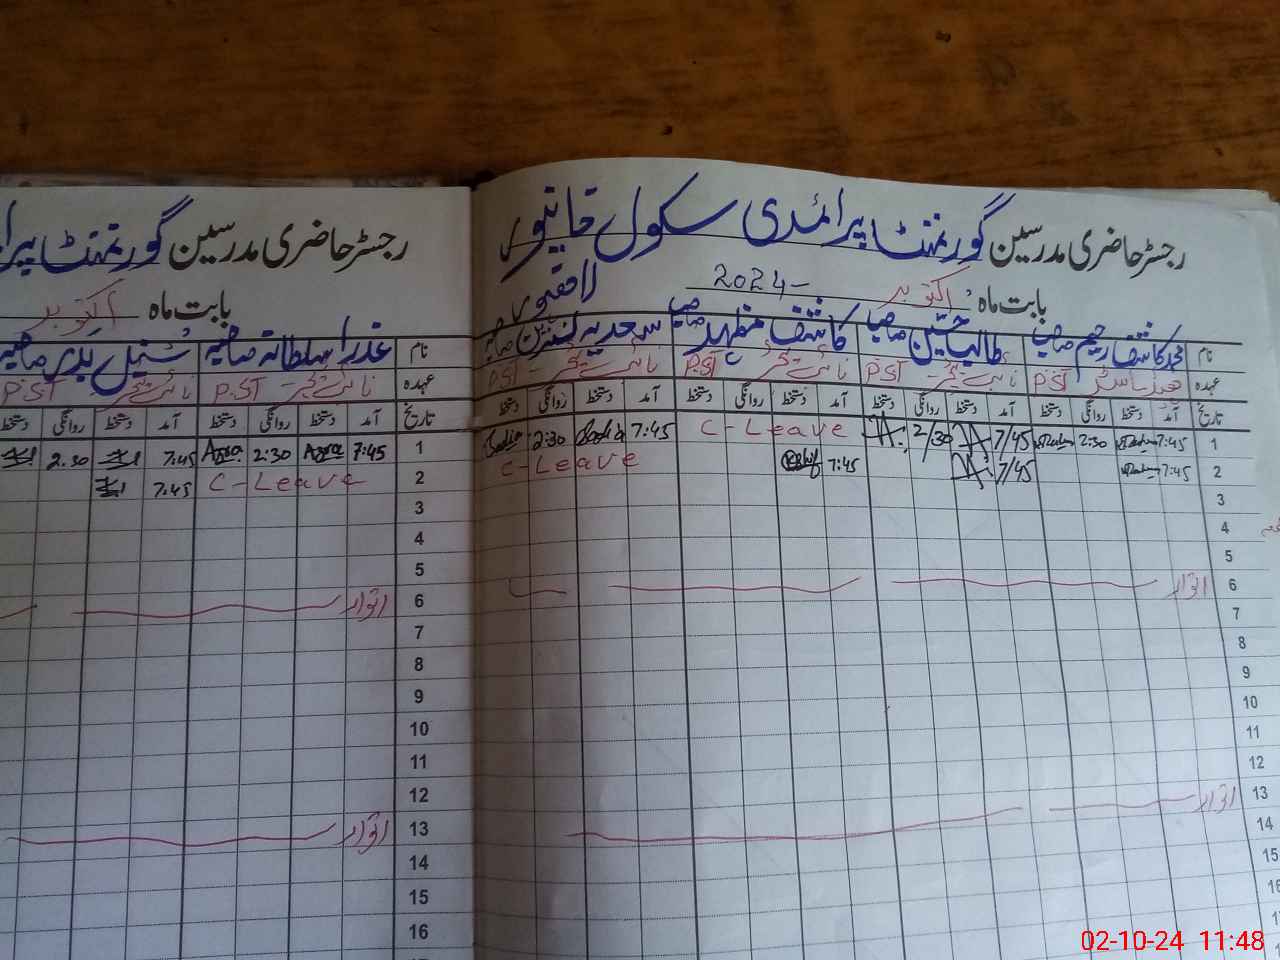 رجسٹر حاضری مدرسین گورنمنٹ پرائمری سکول خانپور
بابت ماہ اکتوبر 2024
نام محمد کاشف رحیم صاحب طالب حسین صاحب کاشف مظہر صاحب سعدیہ نسترن صاحبہ
عہدہ ہیڈ ماسٹر P.ST نائب ٹیچر - P.ST نائب ٹیچر P.ST نائب ٹیچر - P.ST
تاریخ آمد دستخط روانگی دستخط آمد دستخط روانگی دستخط آمد دستخط روانگی دستخط آمد دستخط روانگی دستخط
1 7:45 2:30 7/45 2/30 C-Leave 7:45 Sadia 2:30 Sadia
2 7:45 7/45 7:45 C-Leave
3
4
5
6 اتوار
7
8
9
10
11
12
13 اتوار
14
15
رجسٹر حاضری مدرسین گورنمنٹ
بابت ماہ اکتوبر
نام عذرا سلطانہ صاحبہ
عہدہ نائب ٹیچر - P.ST نائب ٹیچر P.ST
تاریخ آمد دستخط روانگی دستخط آمد دستخط روانگی دستخط
1 7:45 Azra 2:30 Azra 7:45 2.30
2 C-Leave 7.45
3
4
5
6 اتوار
7
8
9
10
11
12
13 اتوار
14
15
16
02-10-24 11:48